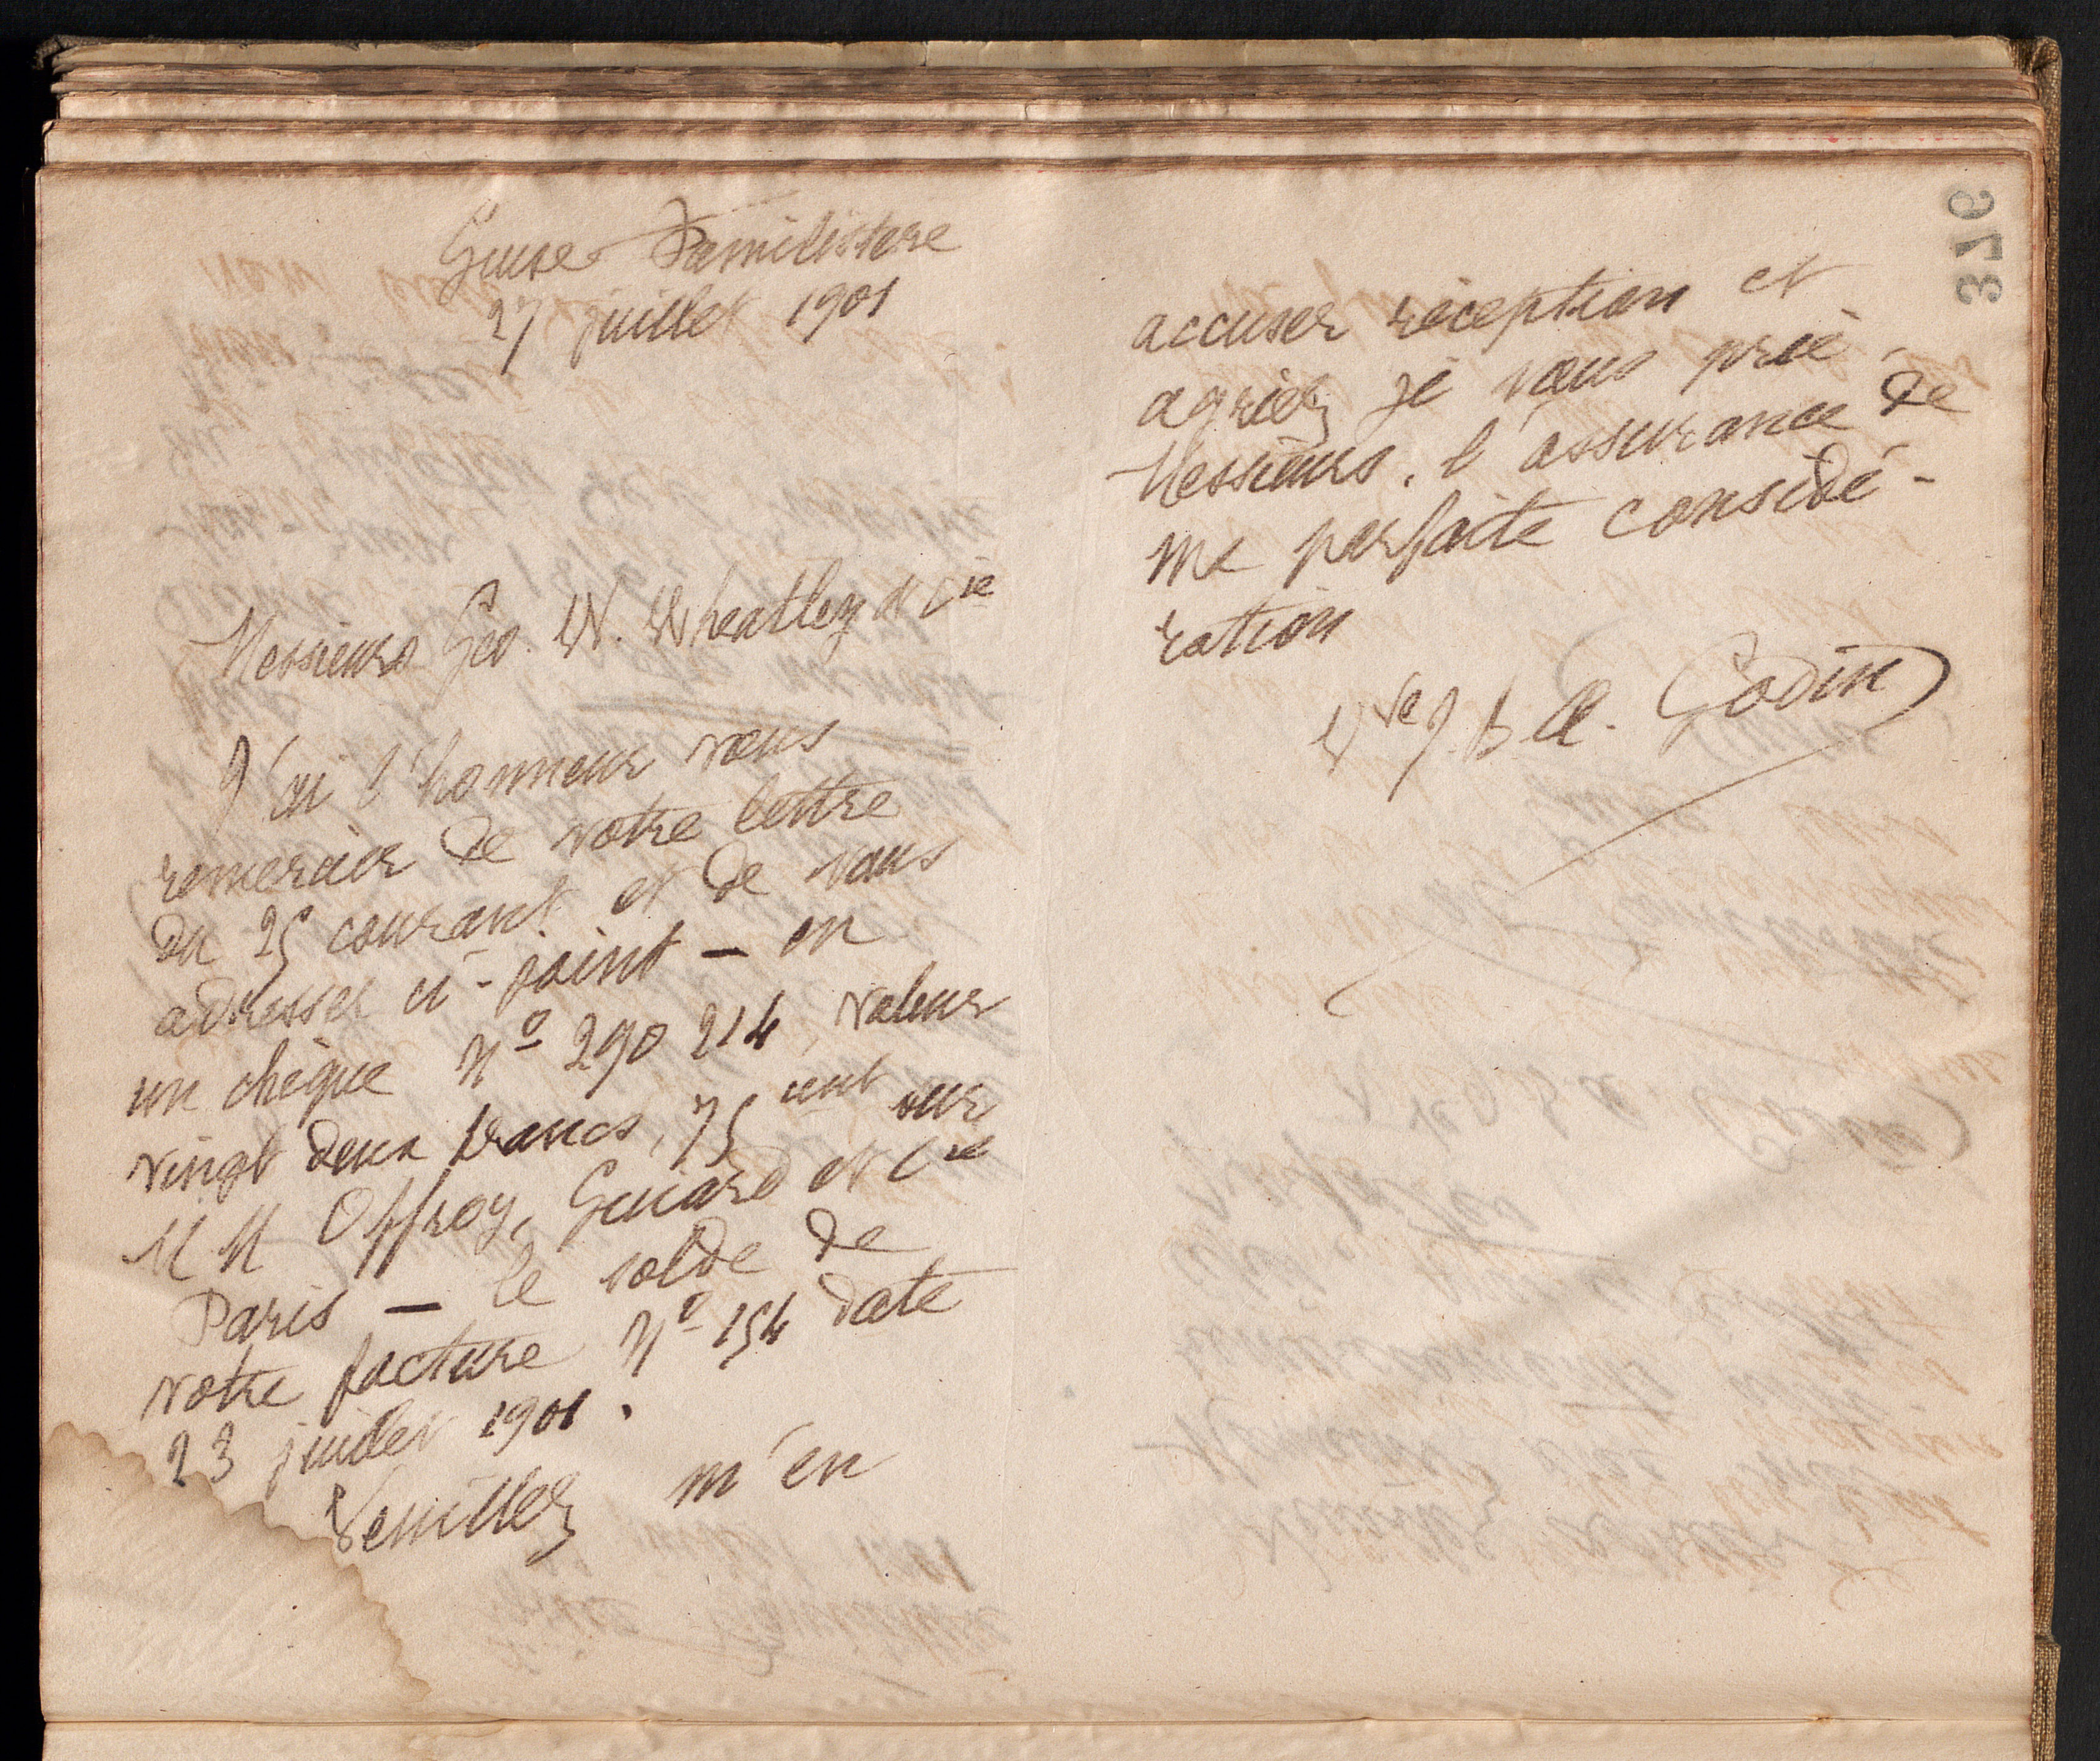 Guise Familistère
27 juillet 1901
Messieurs Geo. W. Wheatley et Cie
J'ai l'honneur vous
remercier de votre lettre
du 25 courant et de vous
adresser ci-joint — en
un chèque No 290 214, valeur
vingt deux francs, 75 cent sur
MM Offroy, Guiard et Cie
Paris — le solde de
votre facture No 154 date
23 juillet 1901.
Veuillez m'en
accuser réception et
agréez je vous prie,
Messieurs, l'assurance de
ma parfaite considé-
ration
Vve J. B. A. Godin
376